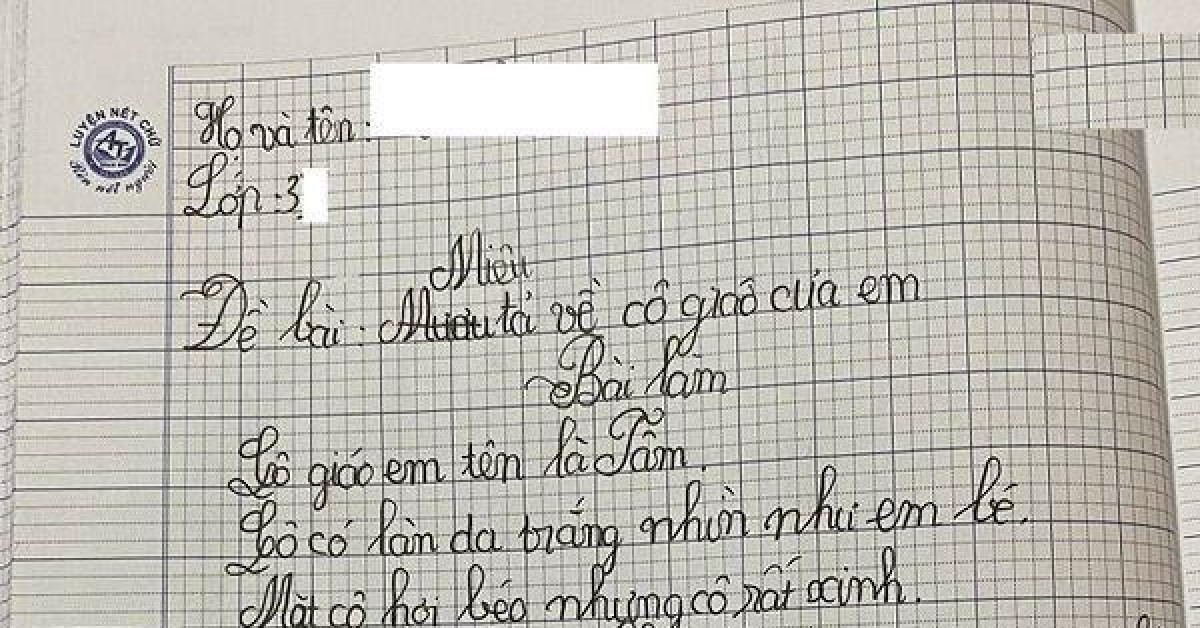 LUYỆN NÉT CHỮ
Rèn nết người
Họ và tên:
Lớp: 3
Miêu
Đề bài: tả về cô giaó của em
Bài làm
Cô giáo em tên là Tâm.
Cô có làn da trắng nhìn như em bé.
Mặt cô hơi béo nhưng cô rất xinh.